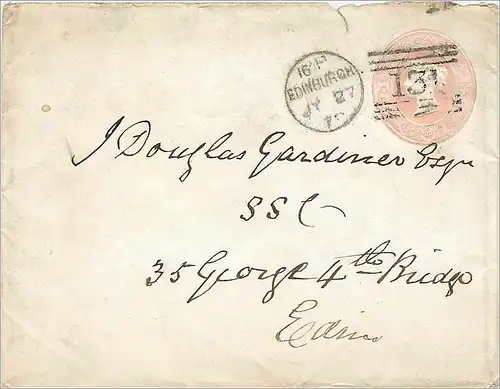 16 P
EDINBURGH
JY 27
131
J Douglas Gardiner Esqr
SSC
35 George 4th Bridge
Edin